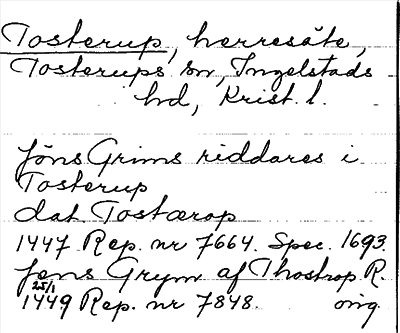 Tosterup, herresäte,
Tosterups sn, Ingelstads
hd, Krist. l.
Jöns Grims riddares i
Tosterup
dat. Tostærop
1447 Rep. nr 7664. Spec. 1693.
Jens Grym af Thostrop R.
25/1
1449 Rep. nr 7848. orig.